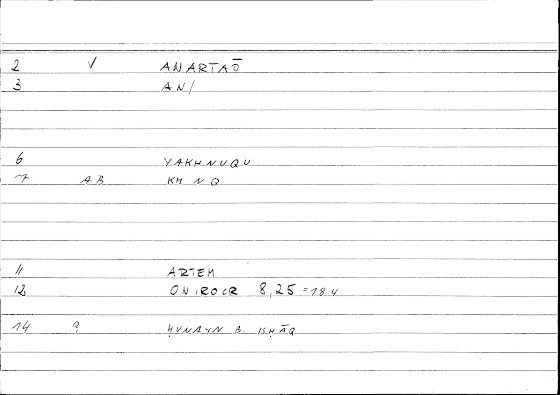 2 √ ANARTAŌ
3 AN/
6 YAKHNUQU
7 AB KH N Q
11 ARTEM
12 ONIROCR 8,25 = 184
14 ? ḤUNAYN B. ISḤĀQ